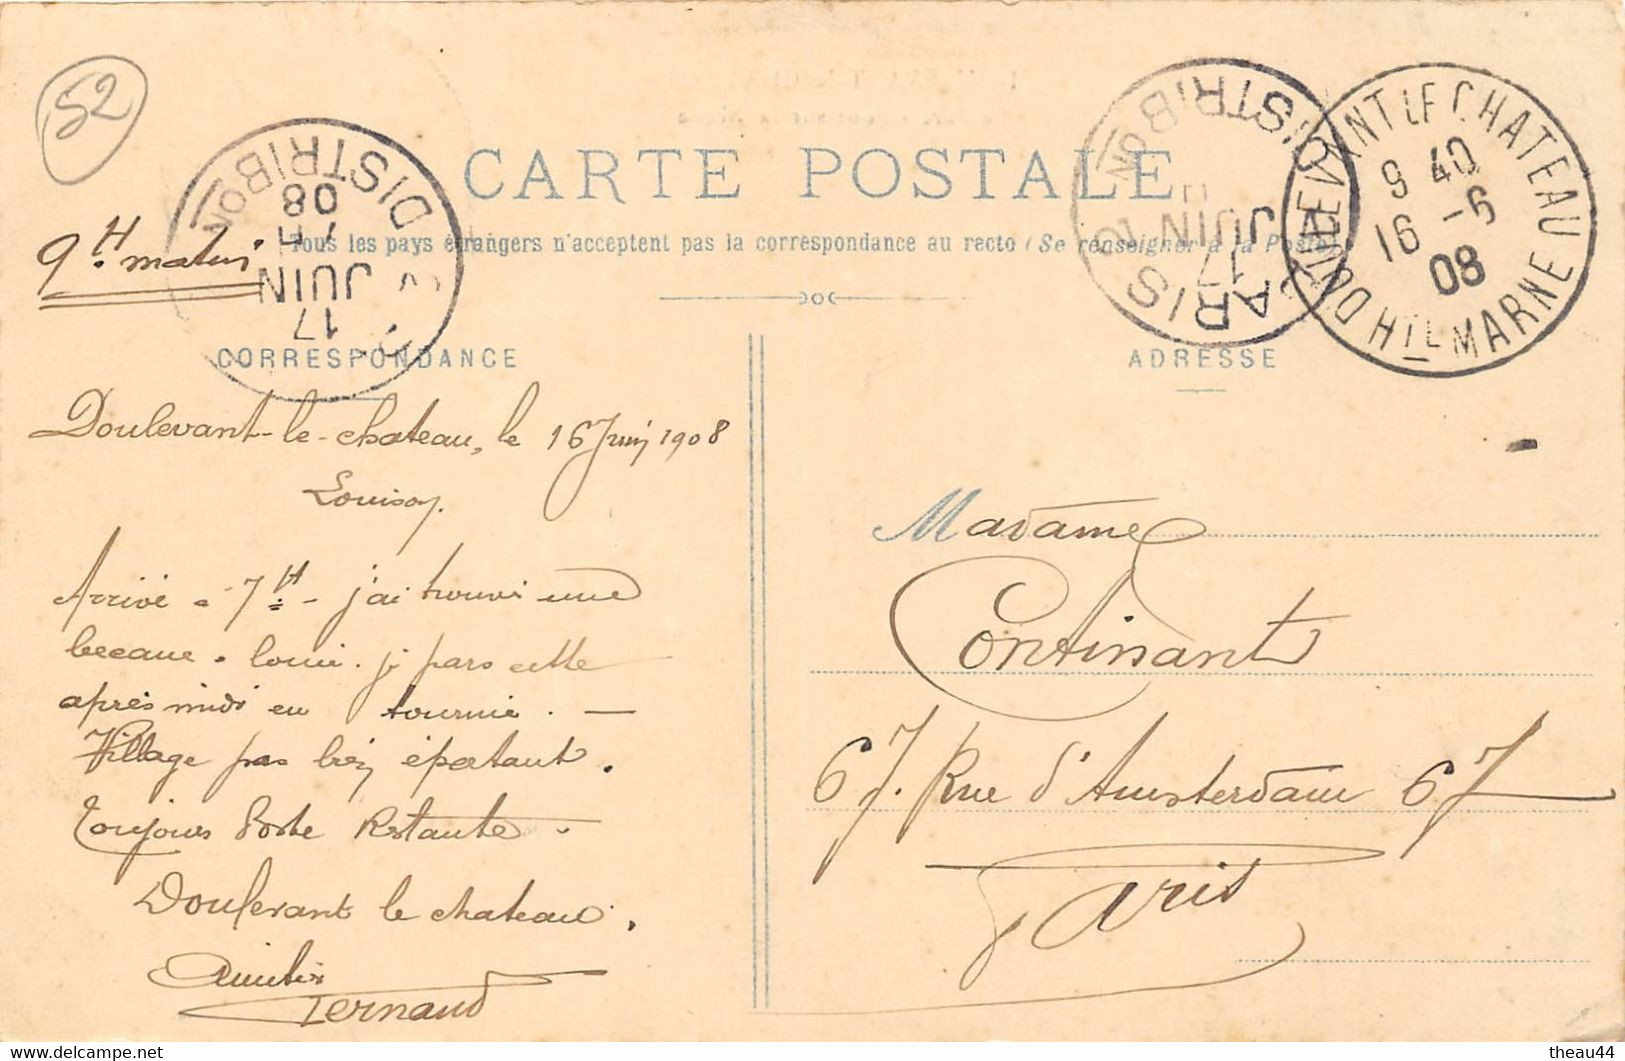 52
CARTE POSTALE
Tous les pays étrangers n'acceptent pas la correspondance au recto (Se renseigner à la Poste)
9H. matin
17
JUIN
7 H
08
DISTRIBON
PARIS
DISTRIBON
17
JUIN
DOULEVANT LE CHATEAU
9 40
16 -6
08
HTE MARNE
CORRESPONDANCE
ADRESSE
Doulevant-le-chateau, le 16 Juin 1908
Arrivé à 7H - j'ai trouvé une
becane. je pars cette
après midi en tournée. —
Village pas bien épatant.
Toujours Poste Restante.
Doulevant le chateau.
Fernand
Madame
Continant
67. Rue d'Amsterdam 67
Paris
theau44